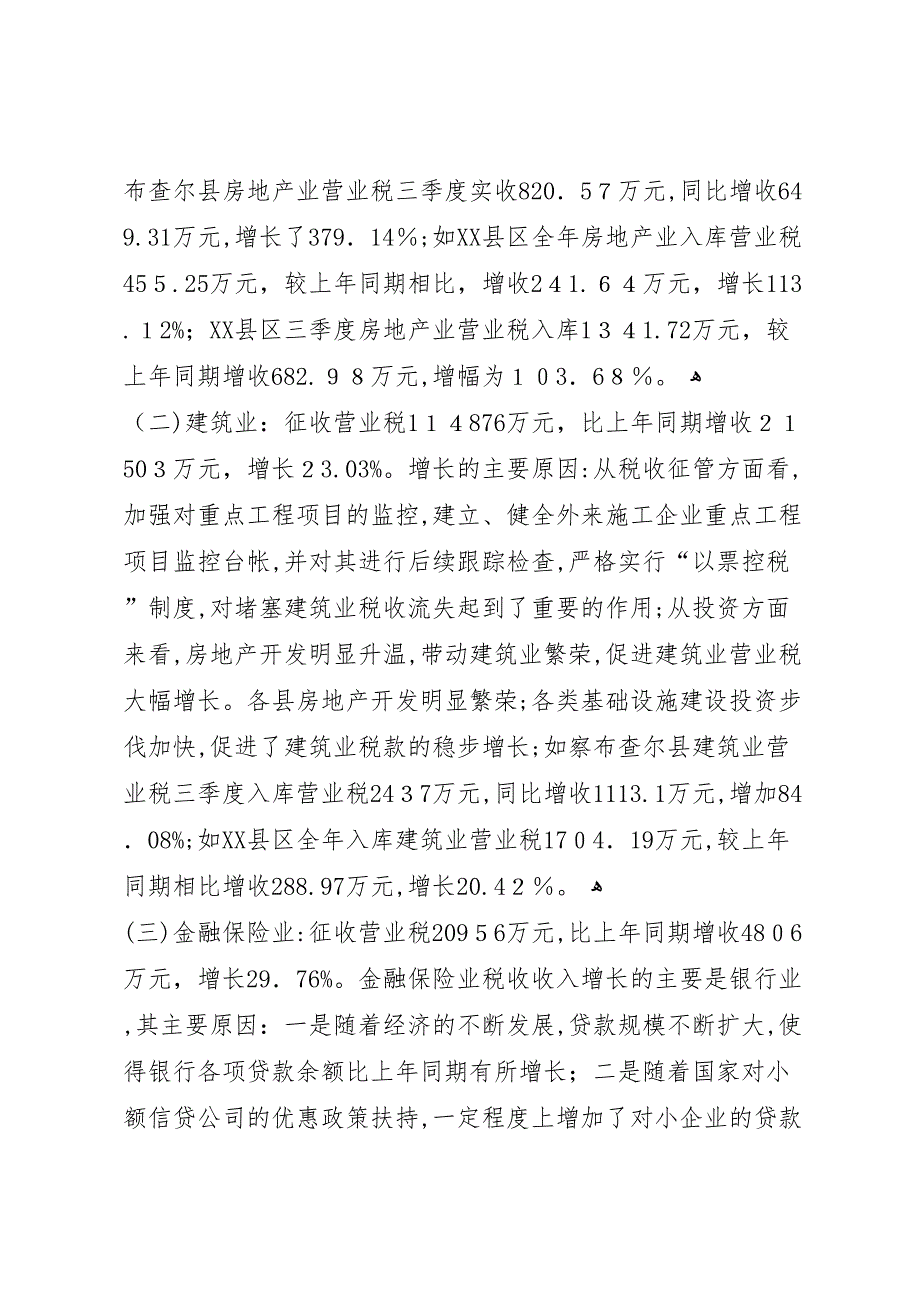 布查尔县房地产业营业税三季度实收820．５7万元,同比增收64
9.31万元,增长了379．14％;如XX县区全年房地产业入库营业税
45５.25万元，较上年同期相比，增收2４1.６４万元，增长113
.１2%；XX县区三季度房地产业营业税入库1３４1.72万元，较
上年同期增收682.９８万元,增幅为１０3.６８％。ﻫ
（二)建筑业：征收营业税1１４876万元，比上年同期增收２１
50３万元，增长２3.03%。增长的主要原因:从税收征管方面看,
加强对重点工程项目的监控,建立、健全外来施工企业重点工程
项目监控台帐,并对其进行后续跟踪检查,严格实行“以票控税
”制度,对堵塞建筑业税收流失起到了重要的作用;从投资方面
来看,房地产开发明显升温,带动建筑业繁荣,促进建筑业营业税
大幅增长。各县房地产开发明显繁荣;各类基础设施建设投资步
伐加快,促进了建筑业税款的稳步增长;如察布查尔县建筑业营
业税三季度入库营业税24３7万元,同比增收1113.1万元,增加84
．08%;如XX县区全年入库建筑业营业税17０4．19万元,较上年
同期相比增收288.97万元,增长20.4２％。ﻫ
(三)金融保险业:征收营业税209５6万元,比上年同期增收48０6
万元，增长29．76%。金融保险业税收收入增长的主要是银行业
,其主要原因：一是随着经济的不断发展,贷款规模不断扩大,使
得银行各项贷款余额比上年同期有所增长；二是随着国家对小
额信贷公司的优惠政策扶持,一定程度上增加了对小企业的贷款